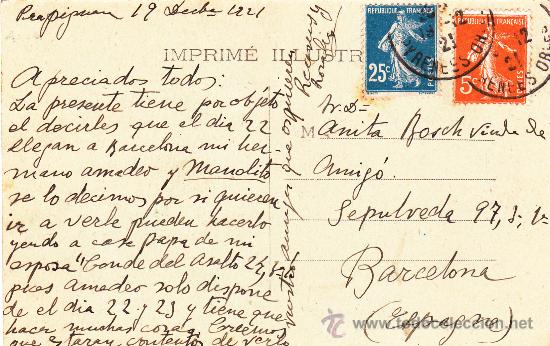 Perpignan 19 Decbre 1921
IMPRIMÉ ILLUSTR
Apreciados todos:
La presente tiene por objeto
el decirles que el dia 22
llegan a Barcelona mi her
mano amadeo y Manolito
se lo decimos por si quieren
ir a verle pueden hacerlo
yendo a casa Papa de mi
esposa "Conde del Asalto 24, 1-
pues amadeo solo dispone
de el dia 22 y 23 y tiene que
hacer muchas cosas. Creemos
que estaran contentos de verlo
vuestro amigo que os quiere
Ramon y
25c
POSTES
FRANÇAISE
5c
POSTES
FRANÇAISE
PYRENEES OR.
21
12
PYRENEES OR.
Sr. D-
Anita Bosch viuda de
Amigó
Sepulveda 97, 3-1-
Barcelona
(España)
todocoleccion.net